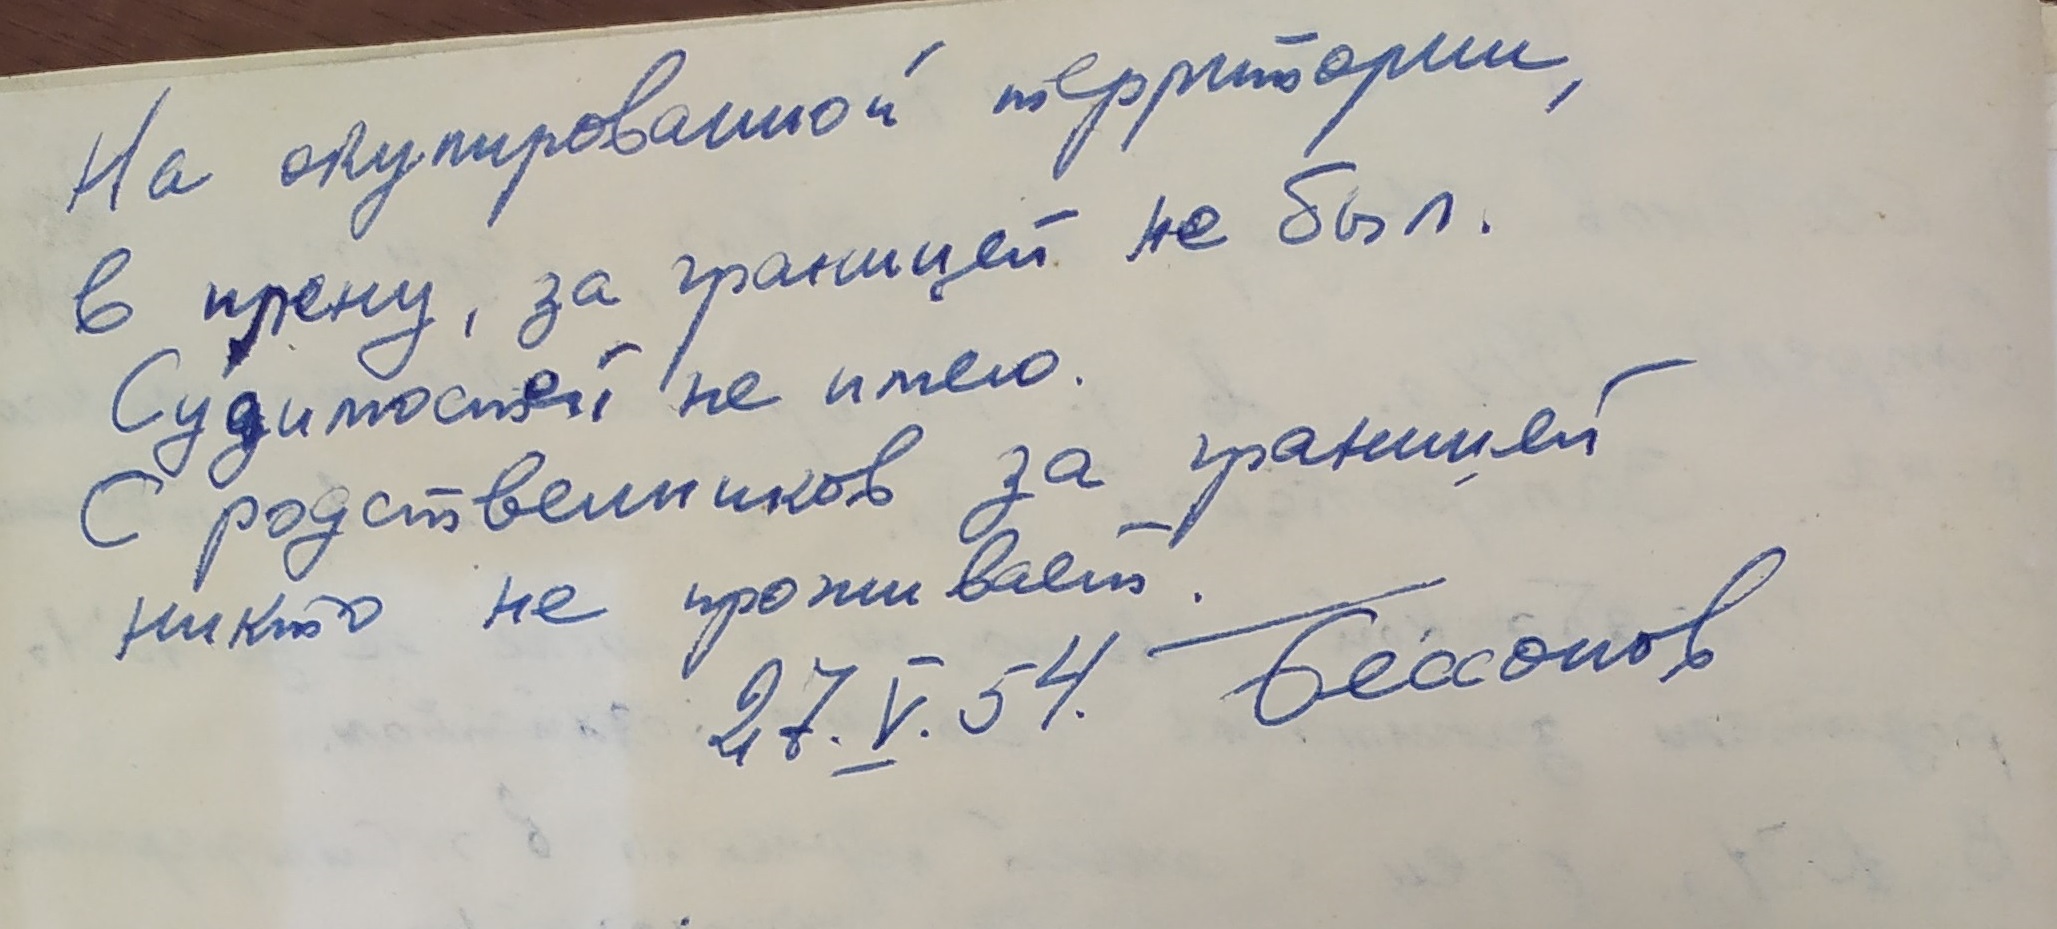 На окупированной территории,
в плену, за границей не был.
Судимостей не имею.
С родственников за границей
никто не проживает.
27.V.54. Бессонов